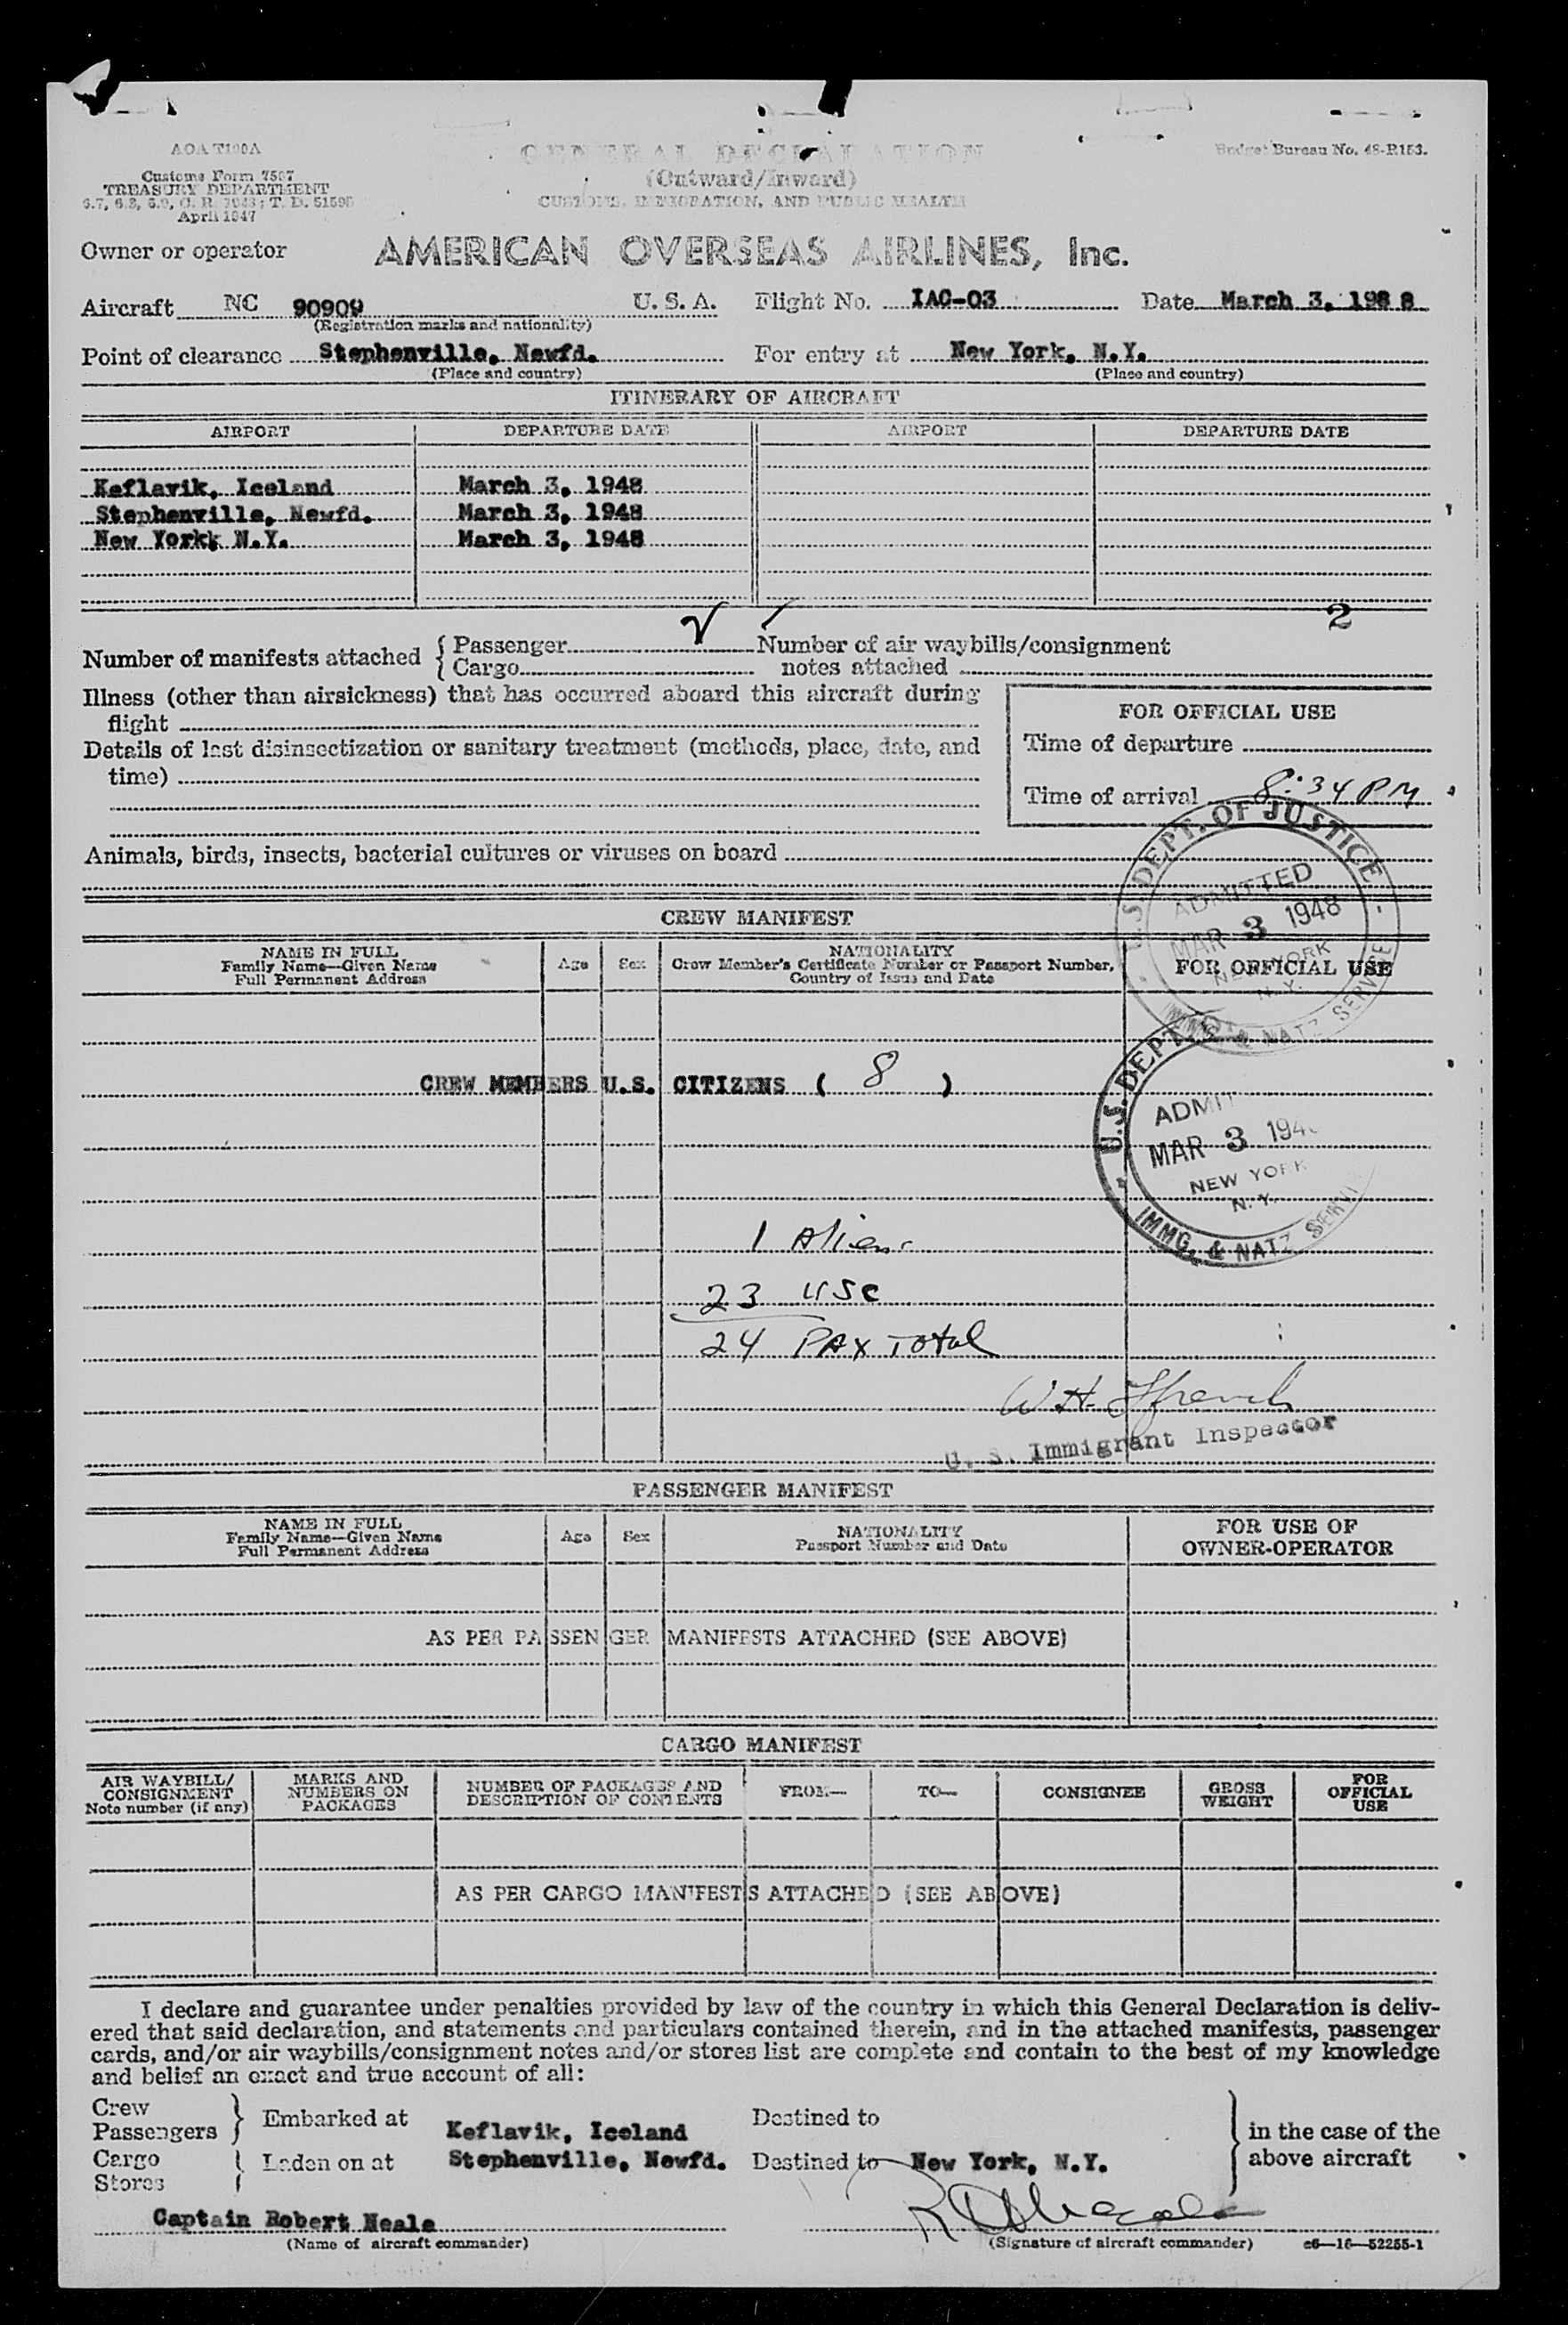 AOA T100A
Customs Form 7507
TREASURY DEPARTMENT
6.7, 6.8, 6.9, C. R. 7943; T. D. 51595
April 1947
GENERAL DECLARATION
(Outward/Inward)
CUSTOMS, IMMIGRATION, AND PUBLIC HEALTH
Budget Bureau No. 48-R153.
Owner or operator AMERICAN OVERSEAS AIRLINES, Inc.
Aircraft NC 90909 U. S. A. Flight No. IAC-03 Date March 3, 1988
(Registration marks and nationality)
Point of clearance Stephenville, Newfd. For entry at New York, N.Y.
(Place and country) (Place and country)
ITINERARY OF AIRCRAFT
AIRPORT DEPARTURE DATE AIRPORT DEPARTURE DATE
Keflavik, Iceland March 3, 1948
Stephenville, Newfd. March 3, 1948
New York, N.Y. March 3, 1948
2
Number of manifests attached { Passenger √ Number of air waybills/consignment
Cargo notes attached
Illness (other than airsickness) that has occurred aboard this aircraft during
flight
Details of last disinsectization or sanitary treatment (methods, place, date, and
time)
FOR OFFICIAL USE
Time of departure
Time of arrival 8:34 PM
Animals, birds, insects, bacterial cultures or viruses on board
U.S. DEPT. OF JUSTICE
ADMITTED
MAR 3 1948
NEW YORK
N. Y.
IMMG. & NATZ SERVICE
CREW MANIFEST
NAME IN FULL
Family Name—Given Name
Full Permanent Address
Age Sex
NATIONALITY
Crew Member's Certificate Number or Passport Number,
Country of Issue and Date
FOR OFFICIAL USE
CREW MEMBERS U.S. CITIZENS ( 8 )
U.S. DEPT.
ADMIT
MAR 3 194
NEW YORK
N. Y.
IMMG. & NATZ SERVI
1 Alien
23 USC
24 PAX Total
W.H. Ffrench
U. S. Immigrant Inspector
PASSENGER MANIFEST
NAME IN FULL
Family Name—Given Name
Full Permanent Address
Age Sex
NATIONALITY
Passport Number and Date
FOR USE OF
OWNER-OPERATOR
AS PER PASSENGER MANIFESTS ATTACHED (SEE ABOVE)
CARGO MANIFEST
AIR WAYBILL/
CONSIGNMENT
Note number (if any)
MARKS AND
NUMBERS ON
PACKAGES
NUMBER OF PACKAGES AND
DESCRIPTION OF CONTENTS
FROM—
TO—
CONSIGNEE
GROSS
WEIGHT
FOR
OFFICIAL
USE
AS PER CARGO MANIFESTS ATTACHED (SEE ABOVE)
I declare and guarantee under penalties provided by law of the country in which this General Declaration is deliv-
ered that said declaration, and statements and particulars contained therein, and in the attached manifests, passenger
cards, and/or air waybills/consignment notes and/or stores list are complete and contain to the best of my knowledge
and belief an exact and true account of all:
Crew
Passengers } Embarked at Keflavik, Iceland Destined to } in the case of the
Cargo { Laden on at Stephenville, Newfd. Destined to New York, N.Y. above aircraft
Stores
Captain Robert Neale
(Name of aircraft commander) (Signature of aircraft commander) c6—16—52255-1